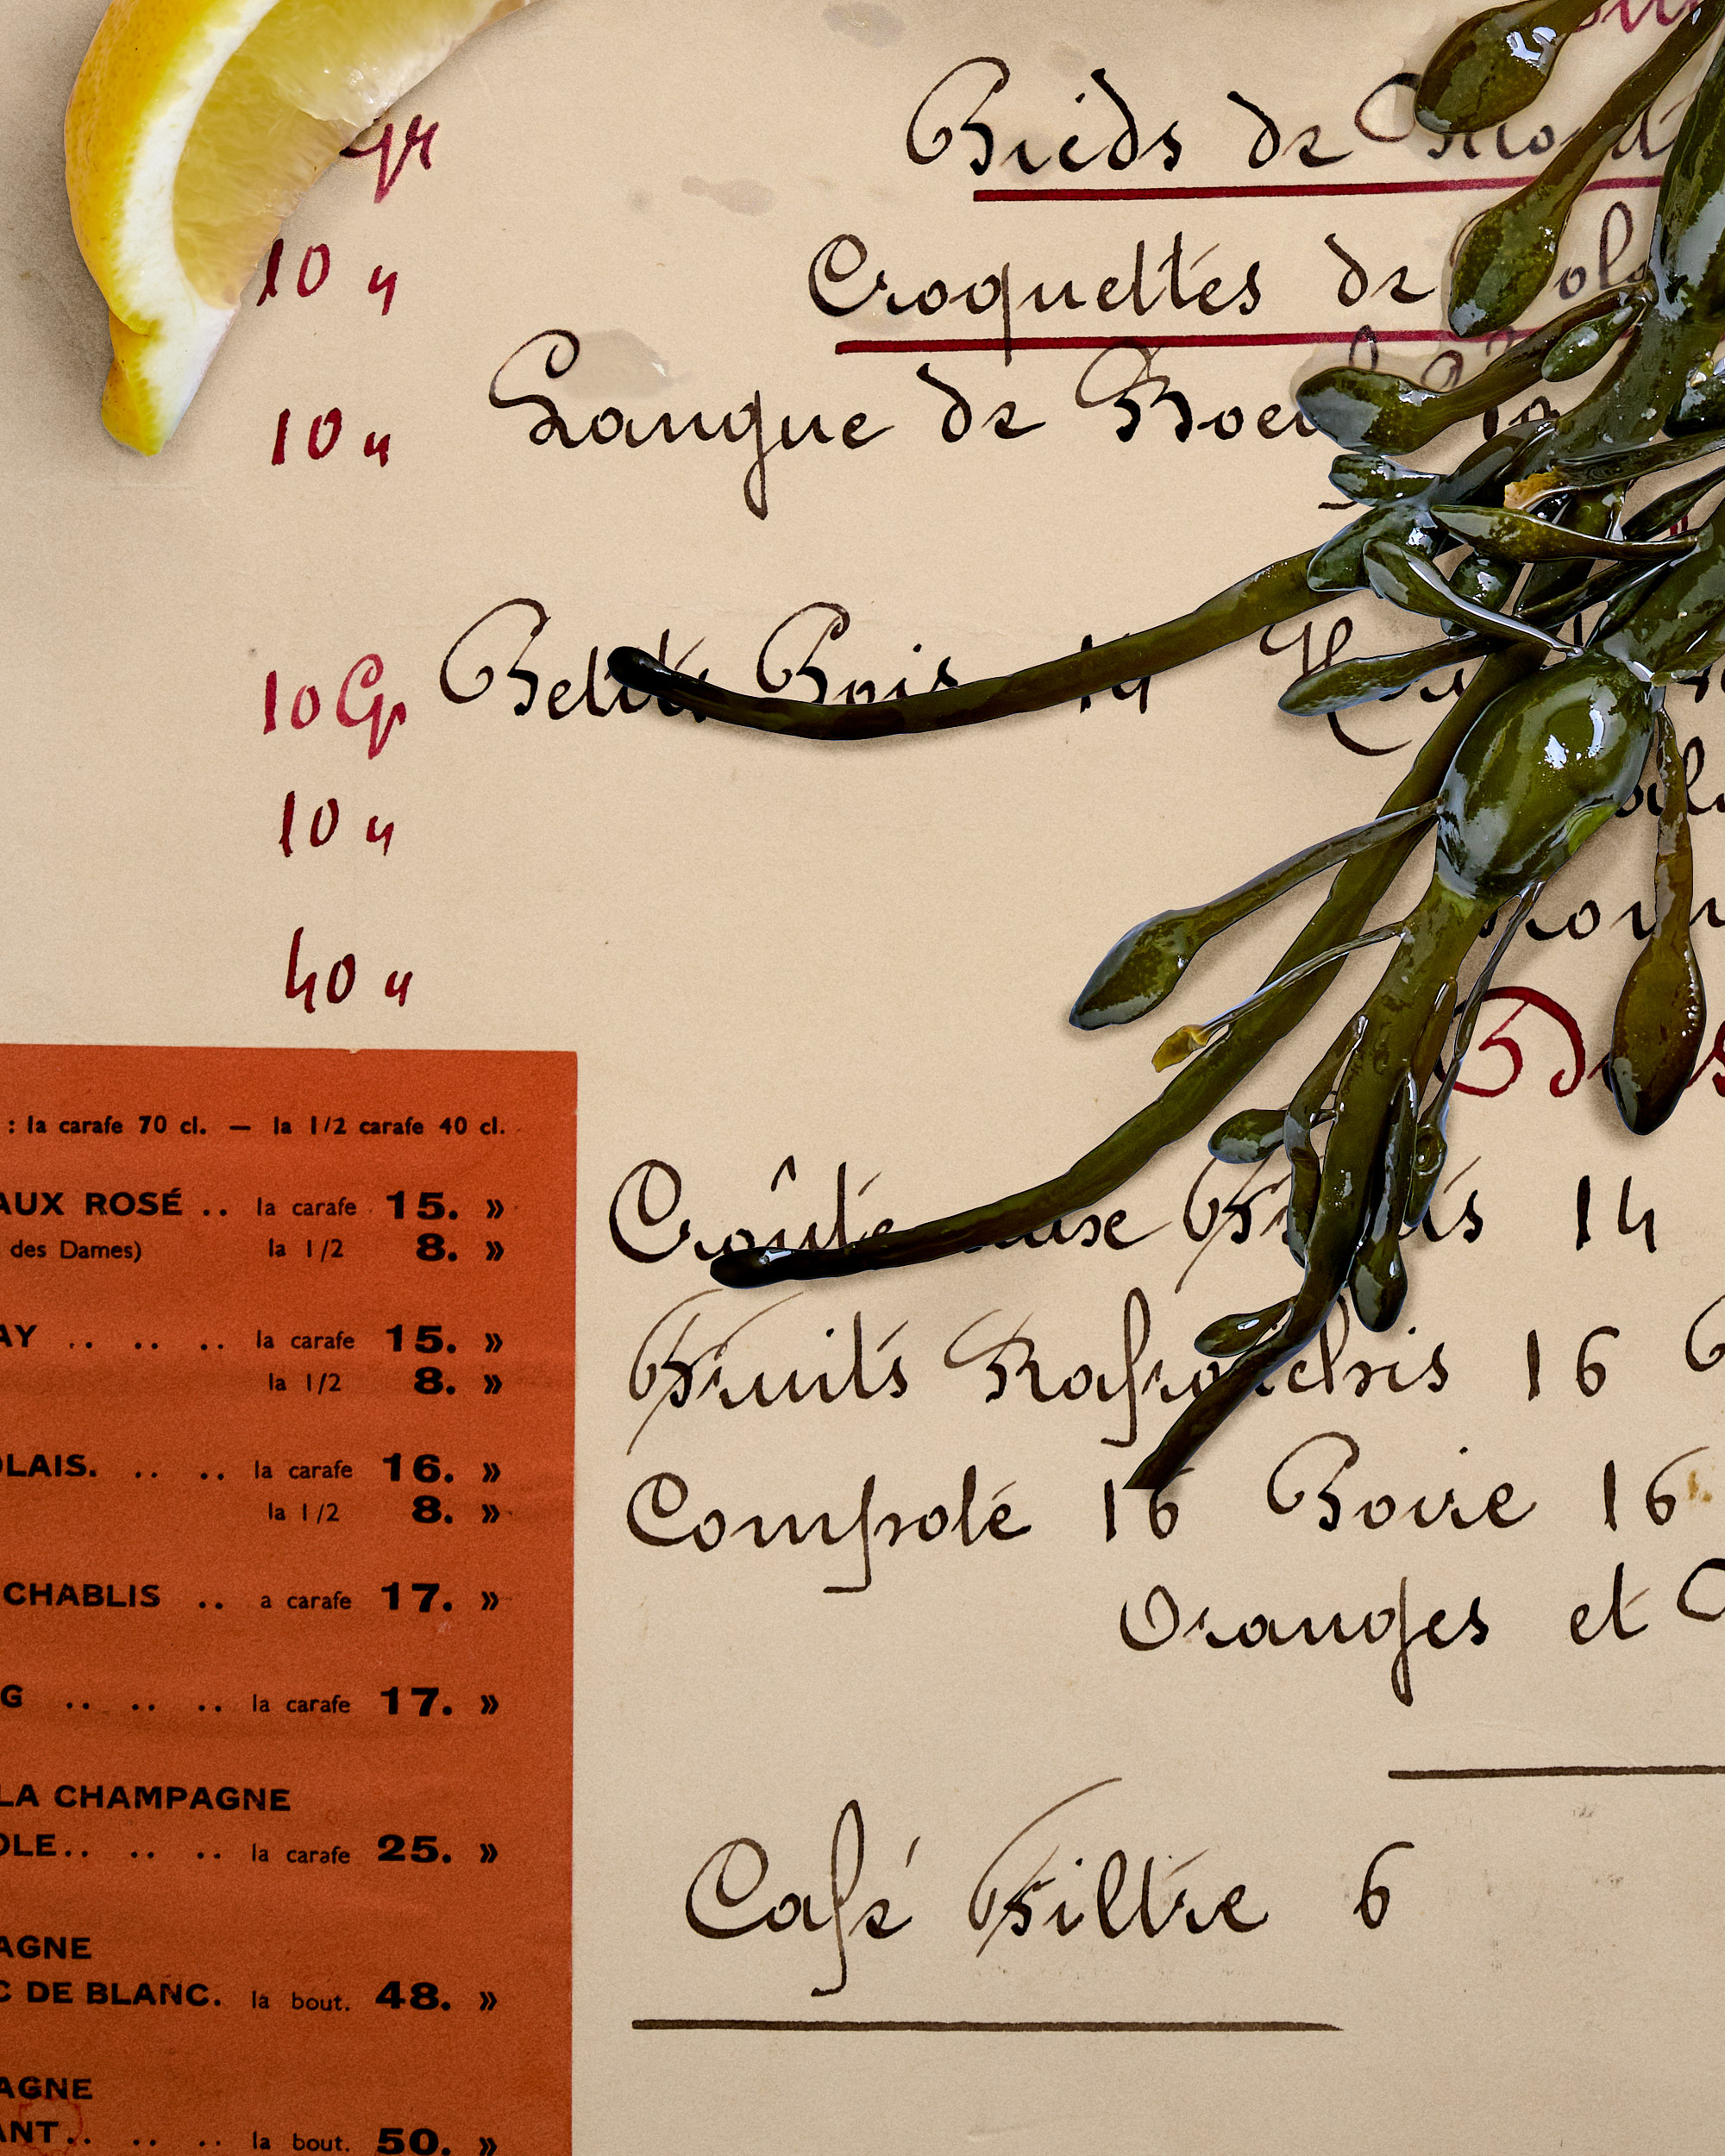 gr
Pieds de
10 "
Croquettes de
10 "
Langue de
10 Gr
Petits Pois 14
10 "
40 "
: la carafe 70 cl. — la 1/2 carafe 40 cl.
AUX ROSÉ .. la carafe 15. »
des Dames) la 1/2 8. »
AY .. .. .. la carafe 15. »
la 1/2 8. »
OLAIS. .. .. la carafe 16. »
la 1/2 8. »
CHABLIS .. a carafe 17. »
G .. .. .. la carafe 17. »
LA CHAMPAGNE
OLE.. .. .. la carafe 25. »
AGNE
C DE BLANC. la bout. 48. »
AGNE
ANT.. .. .. la bout. 50. »
Croûte aux Fruits 14
Fruits Rafraichis 16
Compote 16 Poire 16
Oranges et
Café Filtre 6